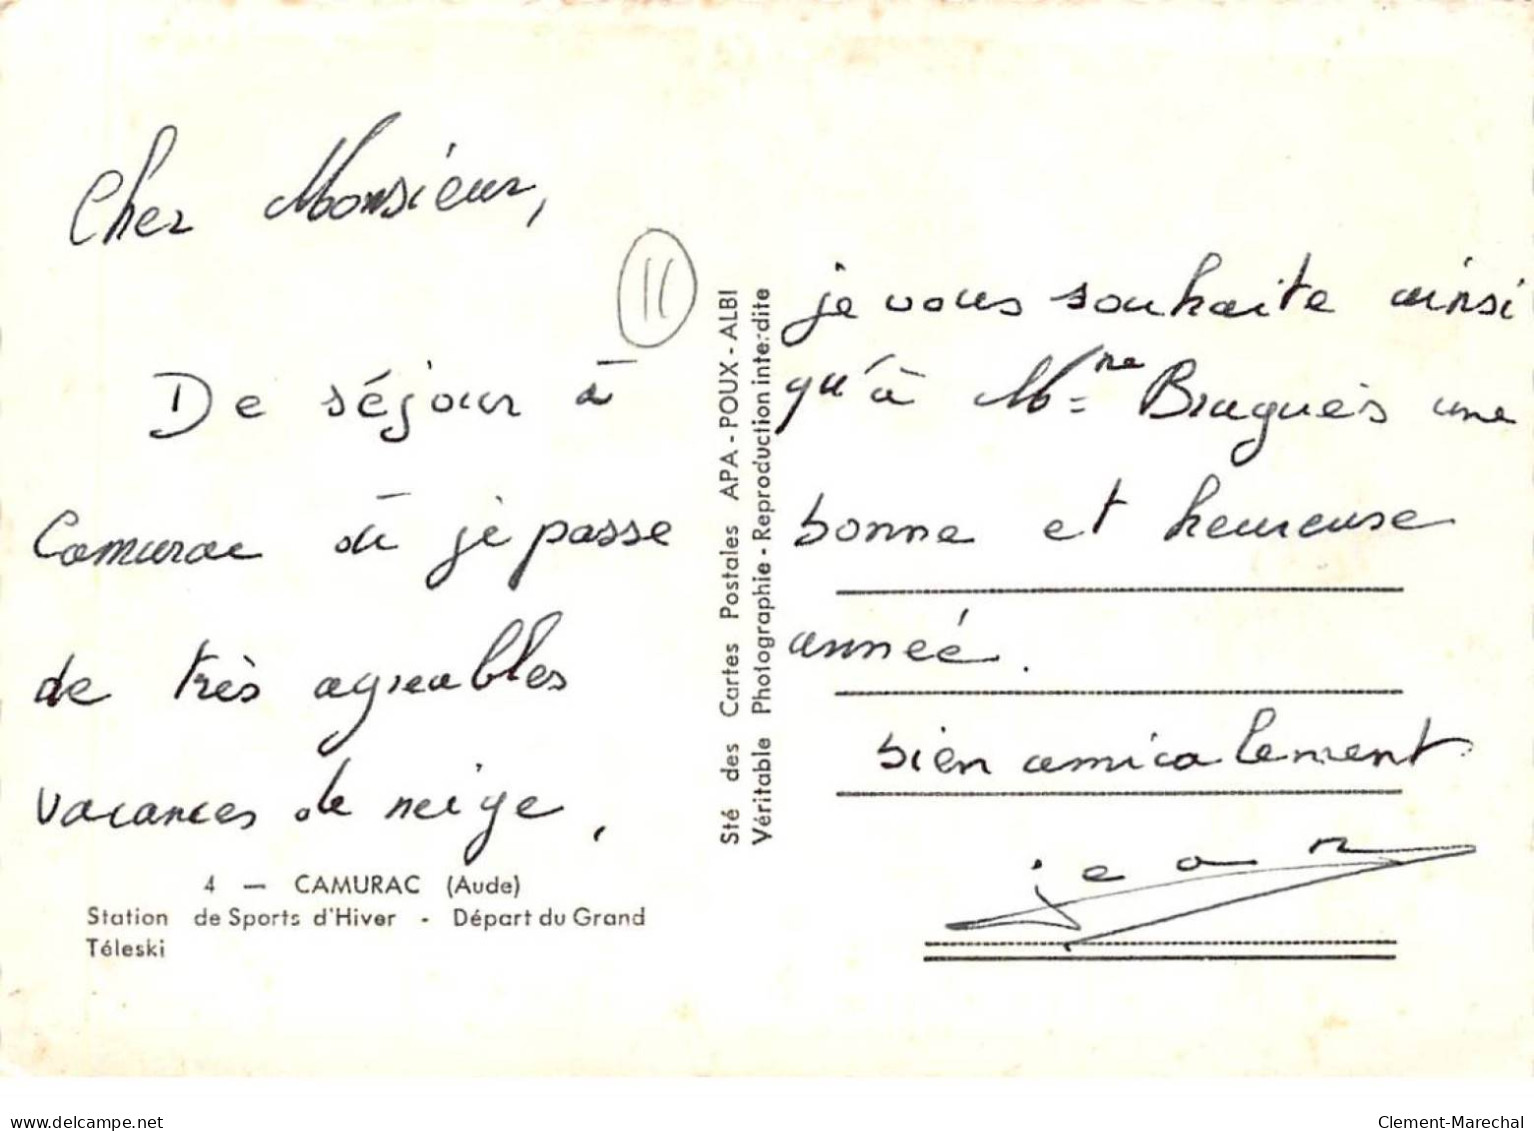 Cher Monsieur,
11
De séjour à
Camurac où je passe
de très agréables
vacances de neige,
4 — CAMURAC (Aude)
Station de Sports d'Hiver - Départ du Grand
Téleski
Sté des Cartes Postales APA - POUX - ALBI
Véritable Photographie - Reproduction interdite
je vous souhaite ainsi
qu'à Mme Bragues une
bonne et heureuse
année.
bien amicalement
jean
delcampe.net
Clement-Marechal